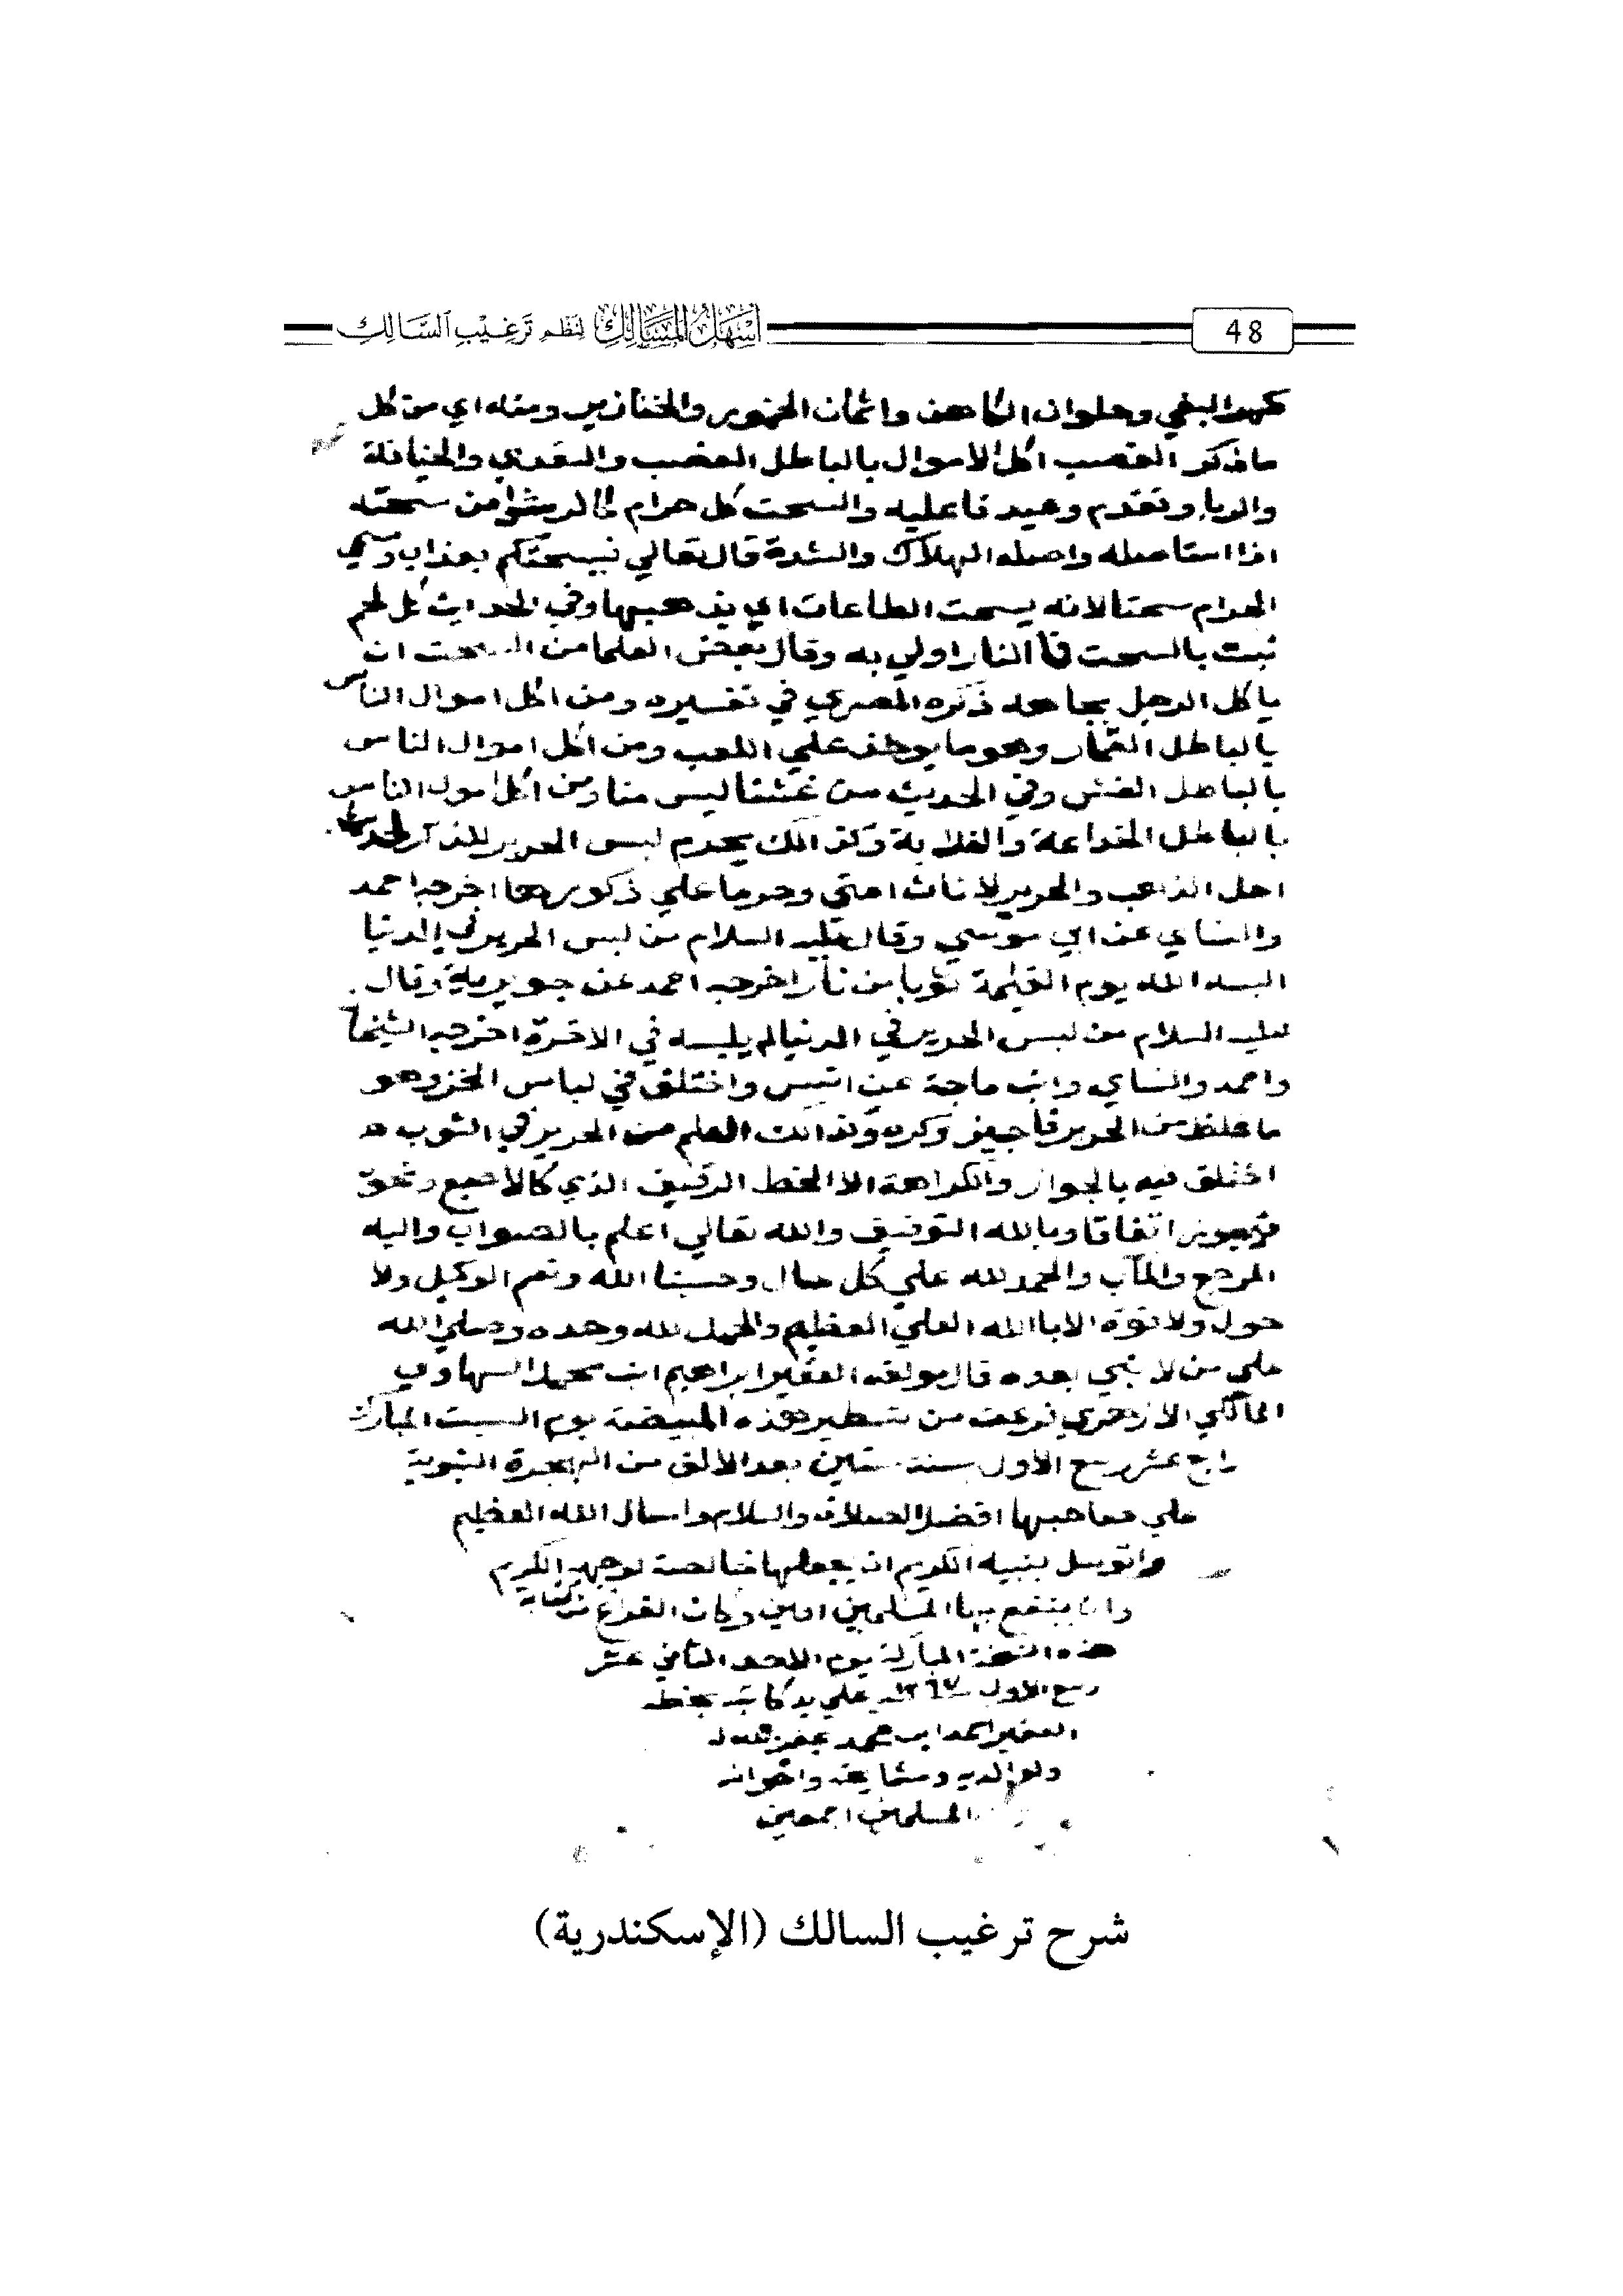 48
أَسْهَلُ المَسَالِكِ لِنَظْمِ تَرْغِيْبِ السَّالِكِ
كمهر البغي وحلوان الكاهن واثمان الخمور والخنازير ومنه اي من كل
ما ذكر الغصب اكل الاموال بالباطل الغصب والتعدي والخيانة
والربا وتقدم وعيد فاعليه والسحت كل حرام كالرشوا من سحته
اذا استاصله واصله الهلاك والشدة قال تعالي فيسحتكم بعذاب وسمي
الحرام سحتا لانه يسحت الطاعات اي يذهبها وفي الحديث كل لحم
نبت بالسحت فا النار اولي به وقال بعض العلما من السحت ان
ياكل الرجل بجاهه ذكره المصري في تفسيره ومن اكل اموال الناس
بالباطل القمار وهو ما يوخذ علي اللعب ومن اكل اموال الناس
بالباطل الغش وفي الحديث من غشنا ليس منا ومن اكل اموال الناس
بالباطل الخداعة والغلابة وكذالك يحرم لبس الحرير للذكر لحديث
احل الذهب والحرير لاناث امتي وحرما علي ذكورها اخرجه احمد
والنساي عن ابي موسي وقال عليه السلام من لبس الحرير في الدنيا
البسه الله يوم القيمة ثوبا من نار اخرجه احمد عن جويرية وقال
عليه السلام من لبس الحرير في الدنيا لم يلبسه في الاخرة اخرجه الشيخان
واحمد والنساي وابن ماجة عن انس واختلف في لباس الخز وهو
ما غلظ من الحرير فاجيز وكره وكذالك العلم من الحرير في الثوب
اختلف فيه بالجواز والكراهة الا الخط الرقيق الذي كالاصبع ونحوه
فيجوز اتفاقا وبالله التوفيق والله تعالي اعلم بالصواب واليه
المرجع والمآب والحمد لله علي كل حال وحسبنا الله ونعم الوكيل ولا
حول ولا قوة الا باالله العلي العظيم والحمد لله وحده وصلي الله
علي من لا نبي بعده قال مولفه الفقير ابراهيم ابن محمد السهاوي
المالكي الازهري فرغت من تسطير هذه المبيضة يوم السبت المبارك
رابع عشر ربيع الاول سنة ستين بعد الالف من الهجرة النبوية
علي صاحبها افضل الصلاة والسلام واسال الله العظيم
واتوسل بنبيه الكريم ان يجعلها خالصة لوجهه الكريم
وان ينفع بها المسلمين امين وكان الفراغ من كتابة
هذه النسخة المباركة يوم الاحد الثاني عشر
ربيع الاول علي يد كاتبه بخطه
الفقير احمد ابن محمد غفر الله له
ولوالديه ومشايخه واخوانه
المسلمين اجمعين
شرح ترغيب السالك (الإسكندرية)